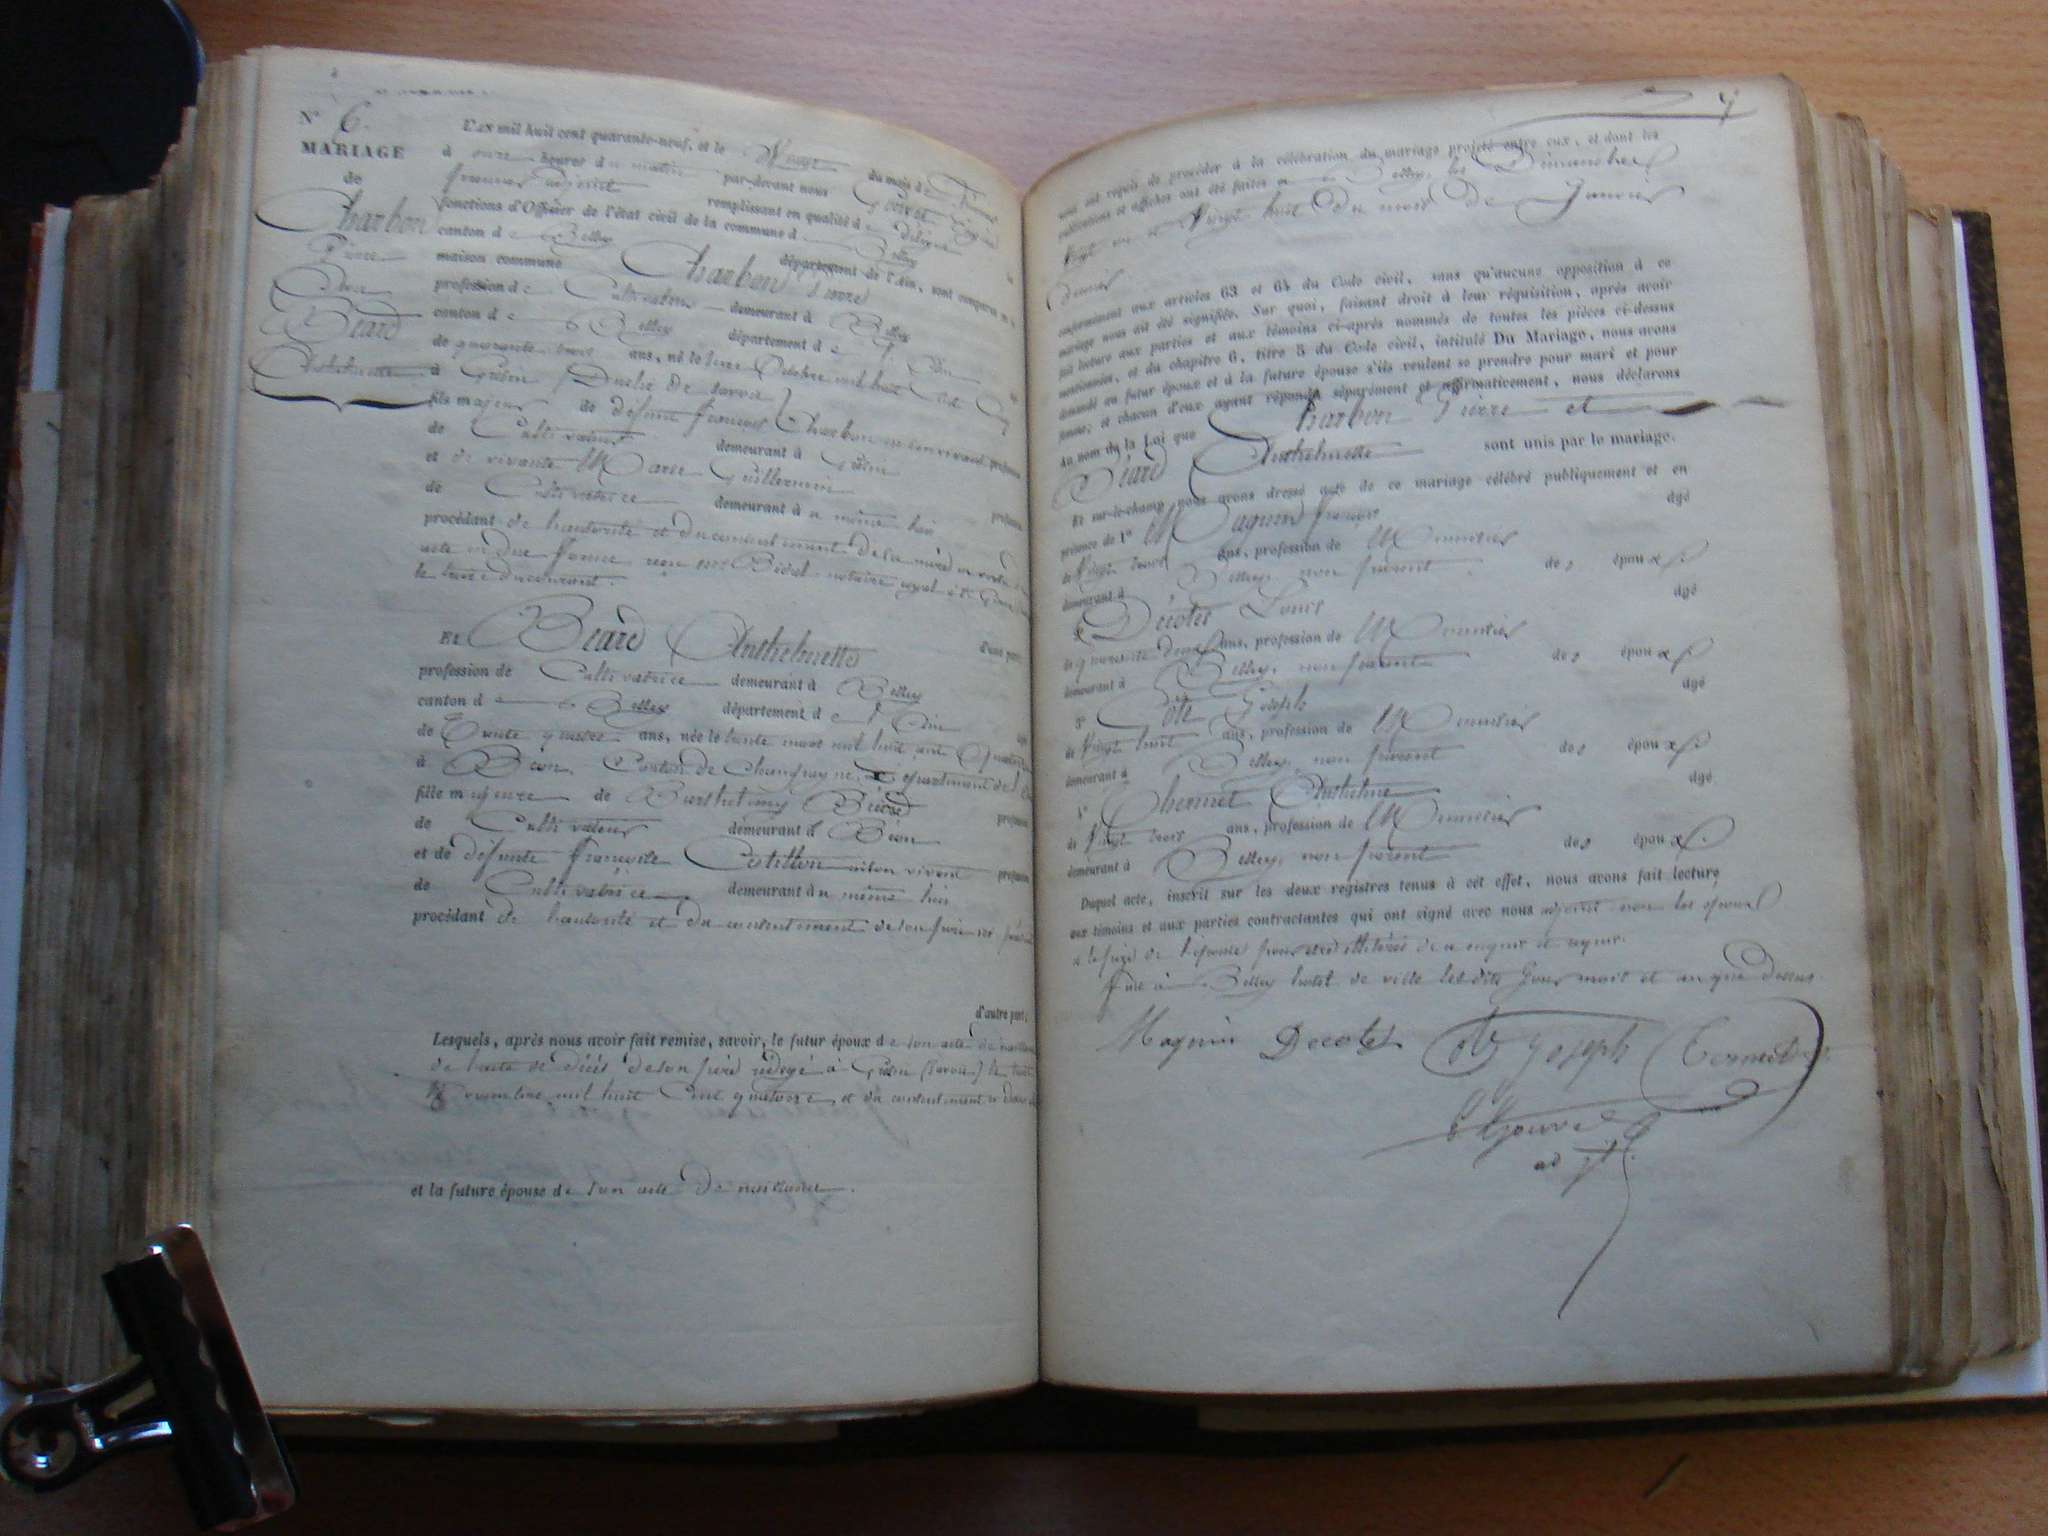 N° 6.
MARIAGE
de
Charbon
Pierre
Avec
Béard
Anthelmette
L'AN mil huit cent quarante-neuf, et le du mois de
à onze heures du matin par-devant nous
premier adjoint remplissant en qualité de délégué
fonctions d'Officier de l'état civil de la commune de Belley
canton de Belley département de l'Ain, sont comparus en la
maison commune Charbon Pierre
profession de Cultivateur demeurant à Belley
canton de Belley département de l'Ain
de quarante trois ans, né le Octobre mil huit cent cinq
à Duché de Savoie
fils majeur de défunt françois Charbon en son vivant profession
de Cultivateur demeurant à
et de vivante Marie Guillermin
de Cultivatrice demeurant au même lieu profession
procédant de l'autorité et du consentement de sa mère
acte en due forme reçu notaire royal
le du courant.
d'une part;
Et Béard Anthelmette
profession de Cultivatrice demeurant à Belley
canton de Belley département de l'Ain
de Trente quatre ans, née le trente mars mil huit cent quatorze
à Béon, Canton de Champagne, département de l'Ain
fille majeure de Barthélemy Béard profession
de Cultivateur demeurant à Béon
et de défunte françoise Cotillon en son vivant profession
de Cultivatrice demeurant au même lieu
procédant de l'autorité et du consentement de son père ici présent
d'autre part;
Lesquels, après nous avoir fait remise, savoir, le futur époux de son acte de naissance
de l'acte de décès de son père rédigé à (Savoie) le
novembre mil huit cent quatorze, et du consentement
et la future épouse de son acte de naissance.
nous ont requis de procéder à la célébration du mariage projeté entre eux, et dont les
publications et affiches ont été faites à Belley, les Dimanches
Vingt un et Vingt huit du mois de Janvier
dernier
conformément aux articles 63 et 64 du Code civil, sans qu'aucune opposition à ce
mariage nous ait été signifiée. Sur quoi, faisant droit à leur réquisition, après avoir
fait lecture aux parties et aux témoins ci-après nommés de toutes les pièces ci-dessus
mentionnées, et du chapitre 6, titre 5 du Code civil, intitulé Du Mariage, nous avons
demandé au futur époux et à la future épouse s'ils veulent se prendre pour mari et pour
femme; et chacun d'eux ayant répondu séparément et affirmativement, nous déclarons
au nom de la Loi que Charbon Pierre et
Béard Anthelmette sont unis par le mariage.
Et sur-le-champ nous avons dressé acte de ce mariage célébré publiquement et en
présence de 1° Magnin françois âgé
de Vingt ans, profession de Menuisier
demeurant à Belley, non parent des époux
2° Décotes Louis âgé
de quarante deux ans, profession de Menuisier
demeurant à Belley, non parent des époux
3° Joseph âgé
de Vingt huit ans, profession de Menuisier
demeurant à Belley, non parent des époux
4° Anthelme âgé
de Vingt trois ans, profession de Menuisier
demeurant à Belley, non parent des époux
Duquel acte, inscrit sur les deux registres tenus à cet effet, nous avons fait lecture
aux témoins et aux parties contractantes qui ont signé avec nous adjoint non les époux
& le père de l'épouse pour être illitérés de ce enquis et requis.
fait à Belley hôtel de ville les dits jour mois et an que dessus
Magnin Decotes Joseph
adjt.